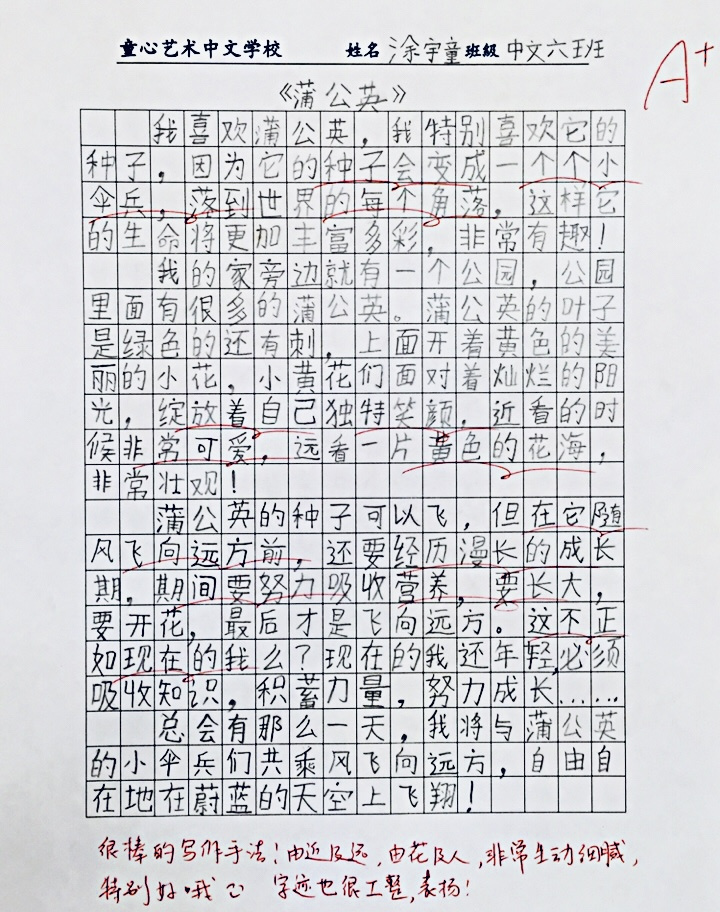 童心艺术中文学校 姓名 涂宇童 班級 中文六班班
A+
《蒲公英》
我喜欢蒲公英，我特别喜欢它的
种子，因为它的种子会变成一个个小
伞兵，落到世界的每个角落，这样它
的生命将更加丰富多彩，非常有趣！
我的家旁边就有一个公园，公园
里面有很多的蒲公英。蒲公英的叶子
是绿色的还有刺，上面开着黄色的美
丽的小花，小黄花们面对着灿烂的阳
光，绽放着自己独特笑颜，近看的时
候非常可爱，远看一片黄色的花海，
非常壮观！
蒲公英的种子可以飞，但在它随
风飞向远方前，还要经历漫长的成长
期，期间要努力吸收营养，要长大，
要开花，最后才是飞向远方。这不正
如现在的我么？现在的我还年轻，必须
吸收知识，积蓄力量，努力成长……
总会有那么一天，我将与蒲公英
的小伞兵们共乘风飞向远方，自由自
在地在蔚蓝的天空上飞翔！
很棒的写作手法！由近及远，由花及人，非常生动细腻，
特别好哦 字迹也很工整，表扬！